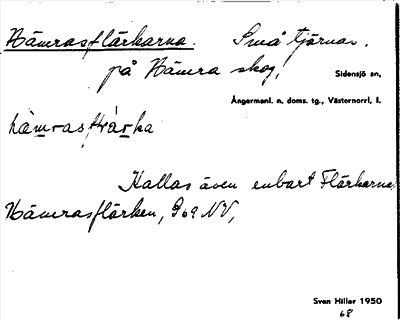 Nämrasflärkarna. Små tjärnar.
på Nämra skog,
Sidensjö sn,
Ångermanl. n. doms. tg., Västernorrl. l.
Kallas även enbart Flärkarna,
Nämrasflärken, 9 69 NV,
Sven Hiller 1950
68